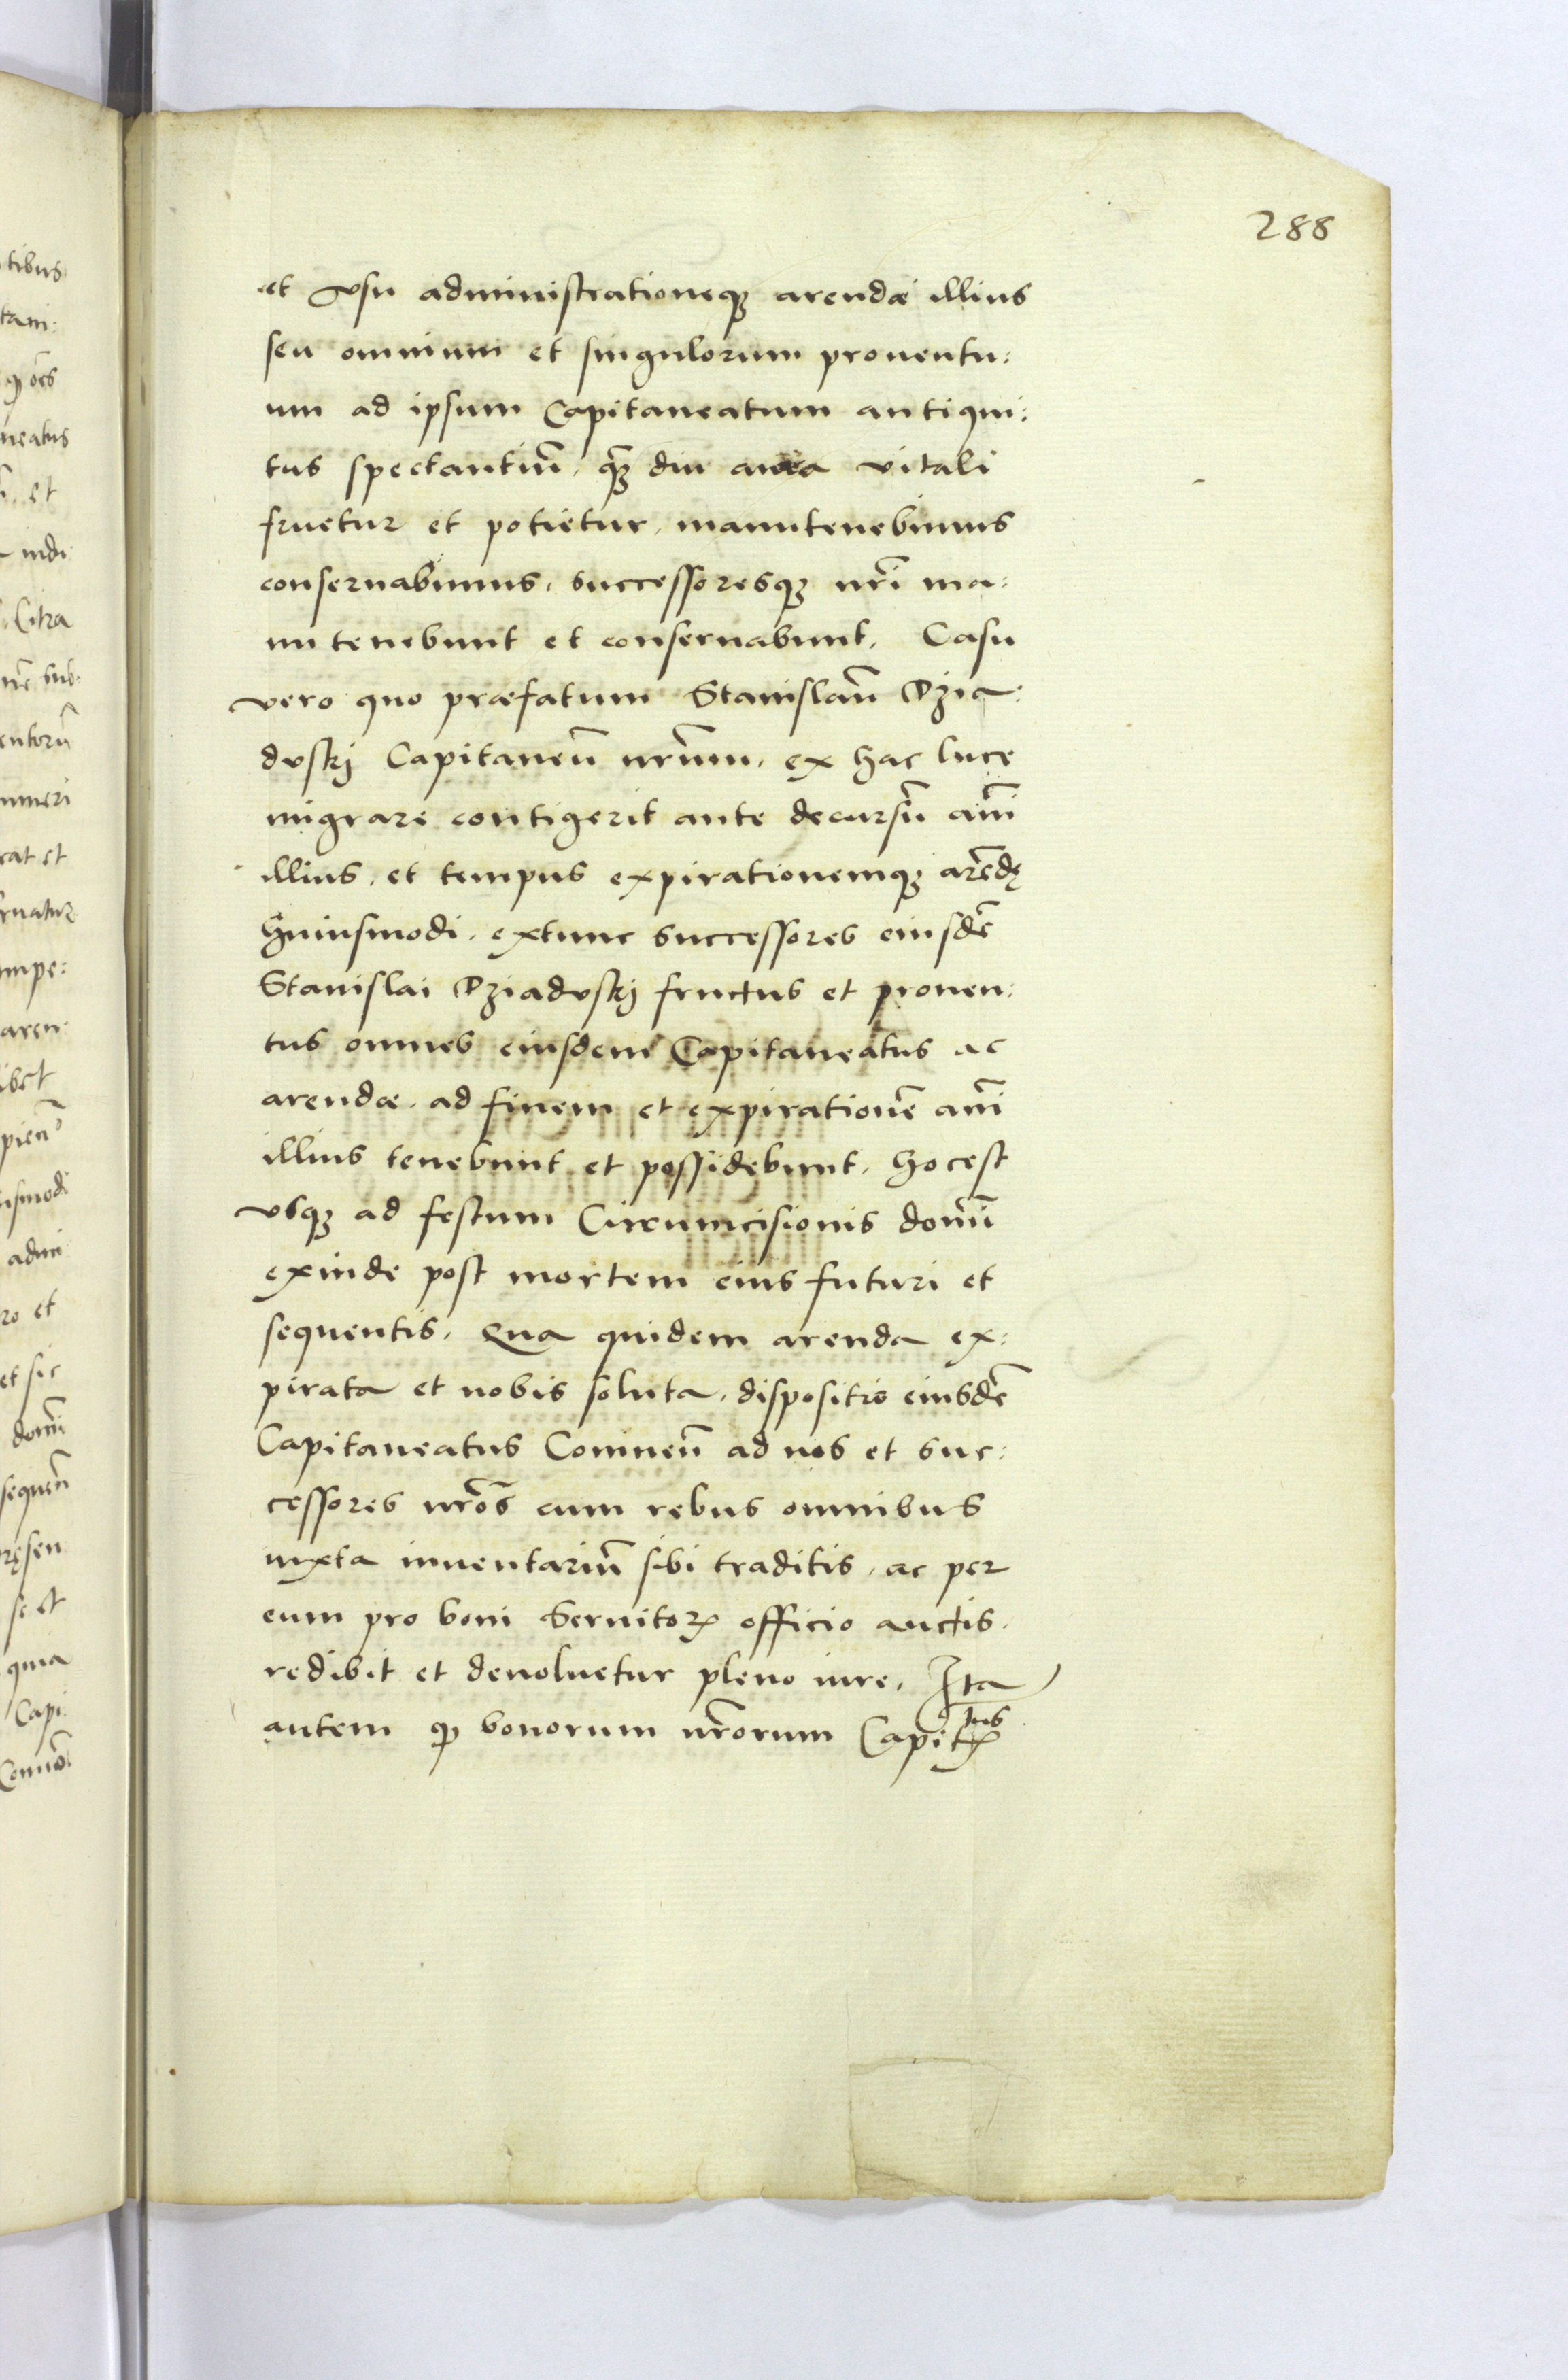 288
et vsu administrationeqȝ arendæ illius
seu omnium et singulorum prouentu:
um ad ipsum Capitaneatum antiqui:
tus spectantiū, qȝ̄ diu aura vitali
fruetur et potietur, manutenebimus
conseruabimus, successoresqȝ nr̄i ma:
nutenebunt et conseruabunt. Casu
vero quo præfatum Stanislaū Dzia:
duskj Capitaneū nr̄um, ex hac luce
migrare contigerit ante decursū an̄i
illius, et tempus expirationemqȝ arēdę
huiusmodi, extunc successores eiusdē
Stanislai Dziaduskj fructus et prouen:
tus omnes eiusdem Capitaneatus ac
arendæ, ad finem et expirationē an̄i
illius tenebunt et possidebunt, hocest
vsqȝ ad festum Circumcisionis domī
exinde post mortem eius futuri et
sequentis. Qua quidem arenda ex:
pirata et nobis soluta, dispositio eiusdē
Capitaneatus Comneū ad nos et suc:
cessores nr̄os cum rebus omnibus
iuxta inuentariū sibi traditis, ac per
eum pro boni Seruitorꝭ officio auctis.
redibit et deuoluetur pleno iure. Ita
autem qp bonorum nr̄orum Capitꝭ
tibus
tam:
qp oēs
neatus
et
indi
Citra
sub:
entorū
rat et
rnatur
impe:
aren:
ibet
ro et
et sic
domi
sequen̄
ręsen
se et
quia
Capi: